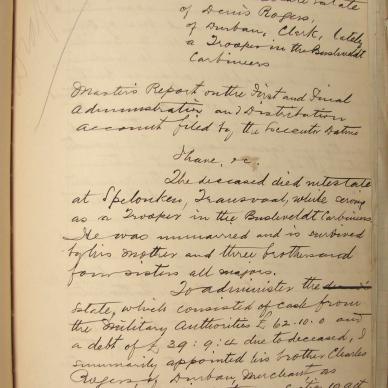 Estate
of Denis Rogers,
of Durban, Clerk, lately
a Trooper in the Bushveldt
Carbineers
Master's Report on the First and Final
Administration and Distribution
Account filed by the Executor Dative
I have, &c.
The deceased died intestate
at Spelonken, Transvaal, while serving
as a Trooper in the Bushveldt Carbineers.
He was unmarried and is survived
by his mother and three brothers and
four sisters all majors.
To administer the
Estate, which consisted of cash from
the Military Authorities £62.10.0 and
a debt of £39:9:4 due to deceased, I
summarily appointed his brother Charles
Rogers of Durban Merchant as